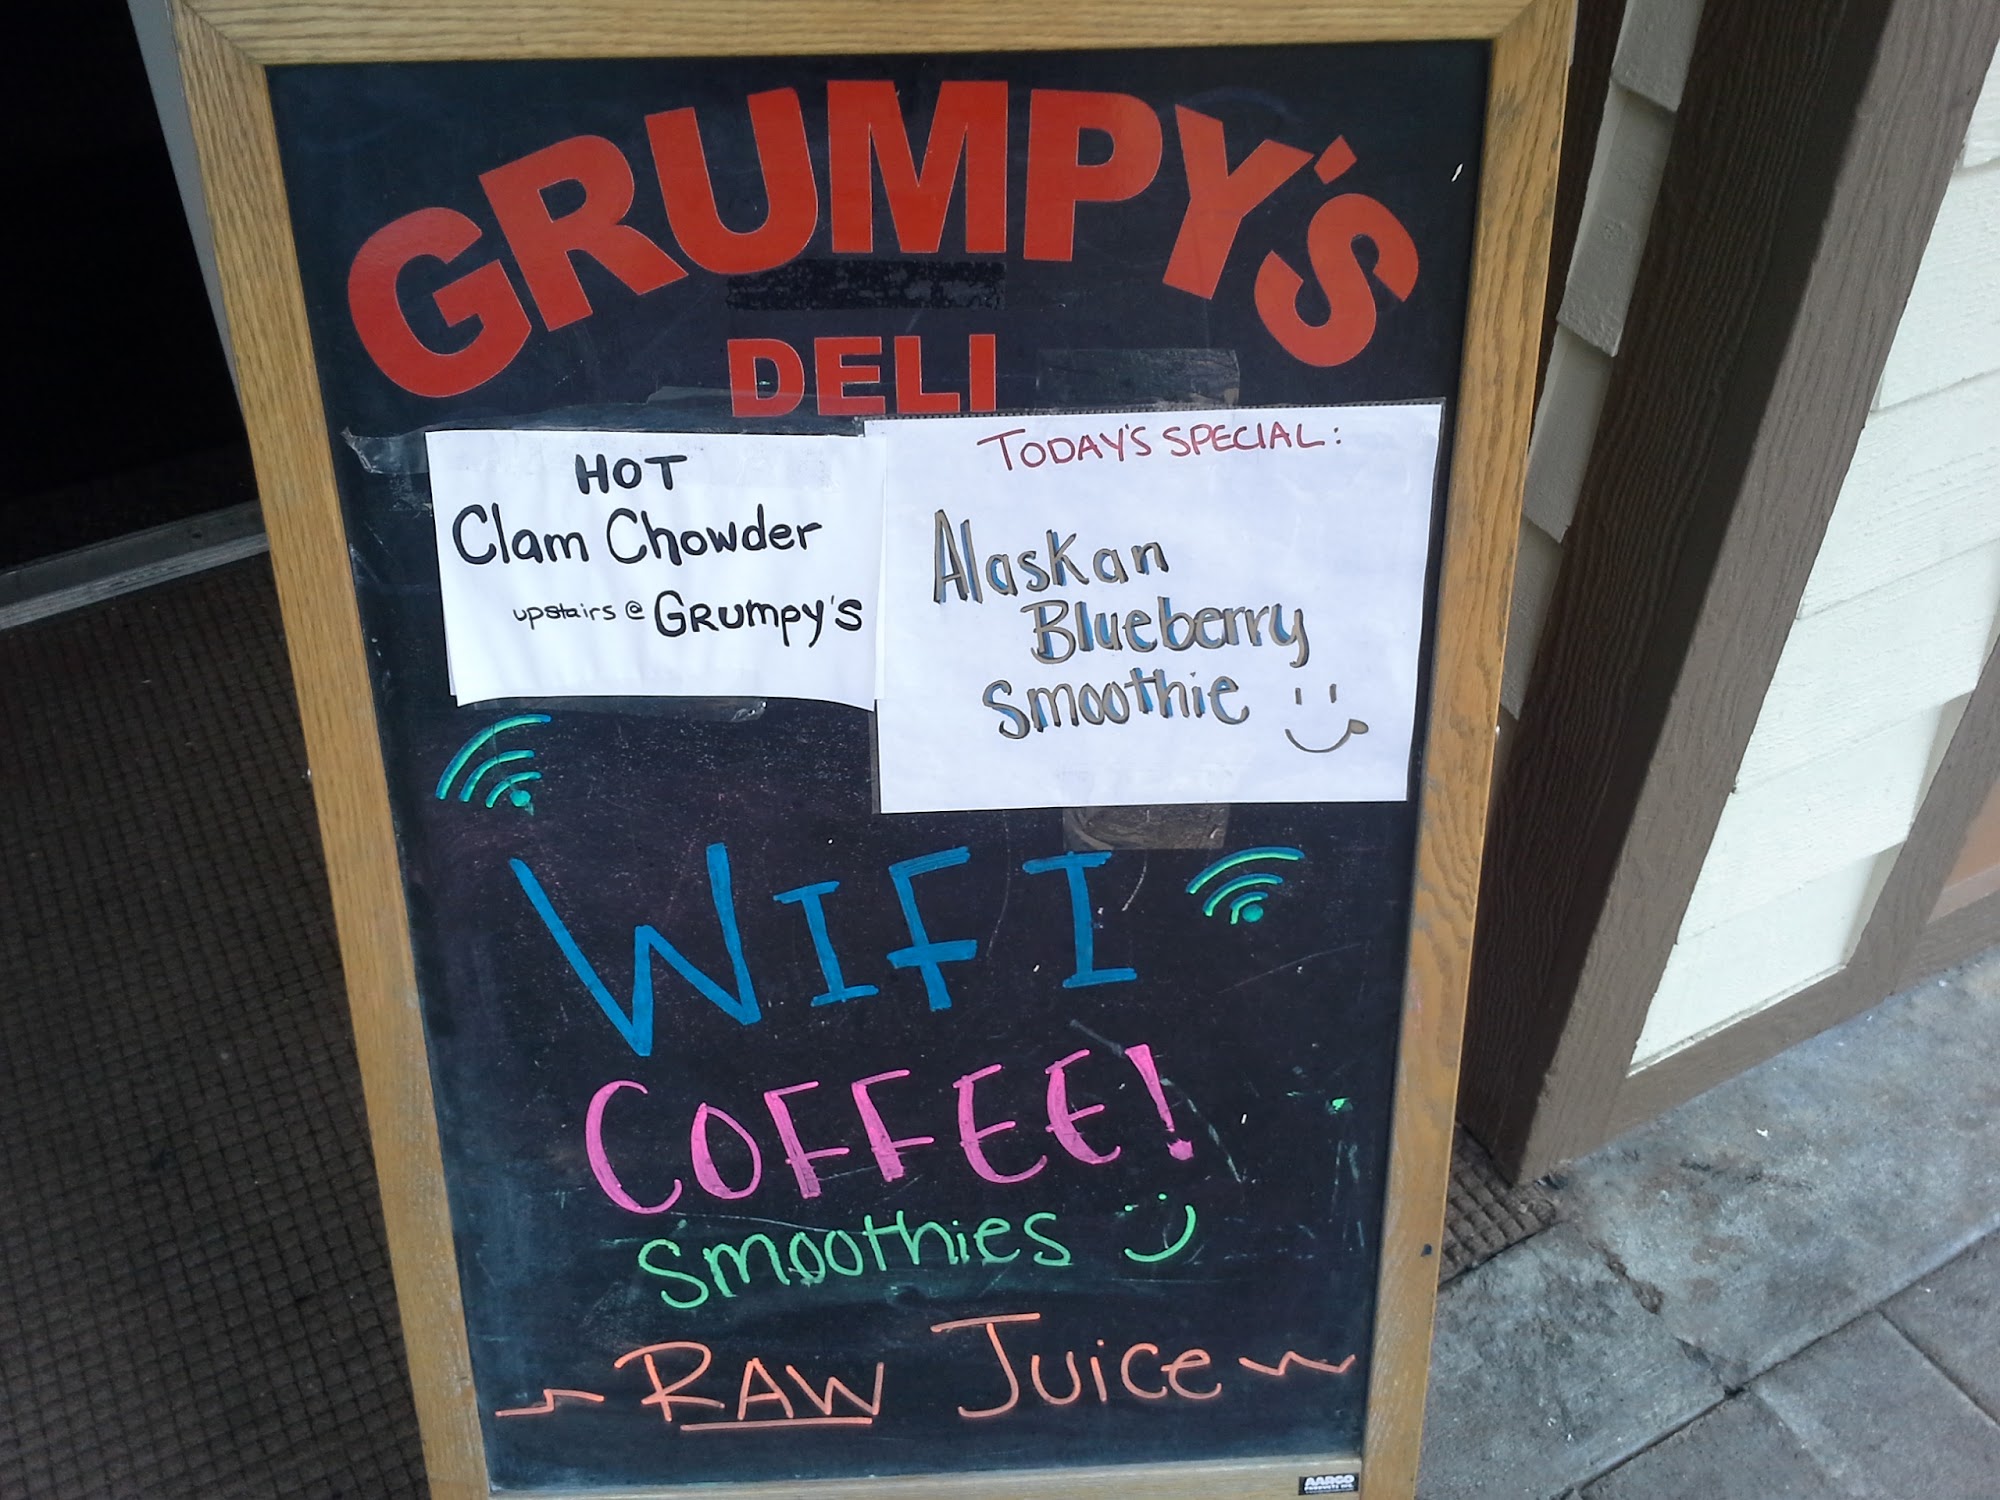 GRUMPY'S
DELI
HOT
Clam Chowder
upstairs @ GRUMPY'S
TODAY'S SPECIAL:
Alaskan
Blueberry
Smoothie
WIFI
COFFEE!
Smoothies
RAW JUICE
AARCO
PRODUCTS INC.